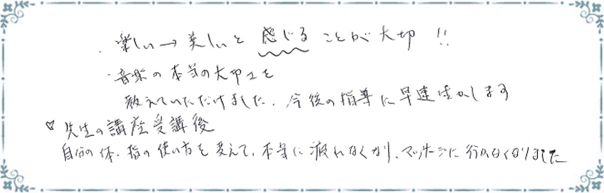 ・楽しい→美しいと感じることが大切!!
・音楽の本当の大切さを
教えていただけました。今後の指導に早速活かします
♡先生の講座受講後
自分の体、指の使い方を変えて、本当に疲れなくなり、マッサージに行かなくなりました